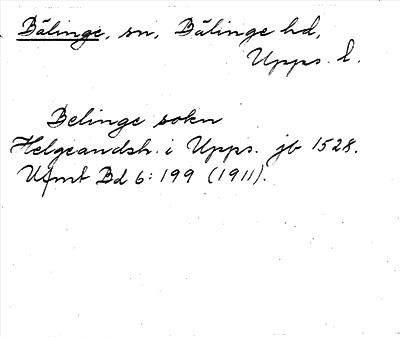 Bälinge, sn, Bälinge hd,
Upps. l.
Belinge sokn
Helgeandsh. i Upps. jb 1528.
Ufmt Bd 6: 199 (1911).